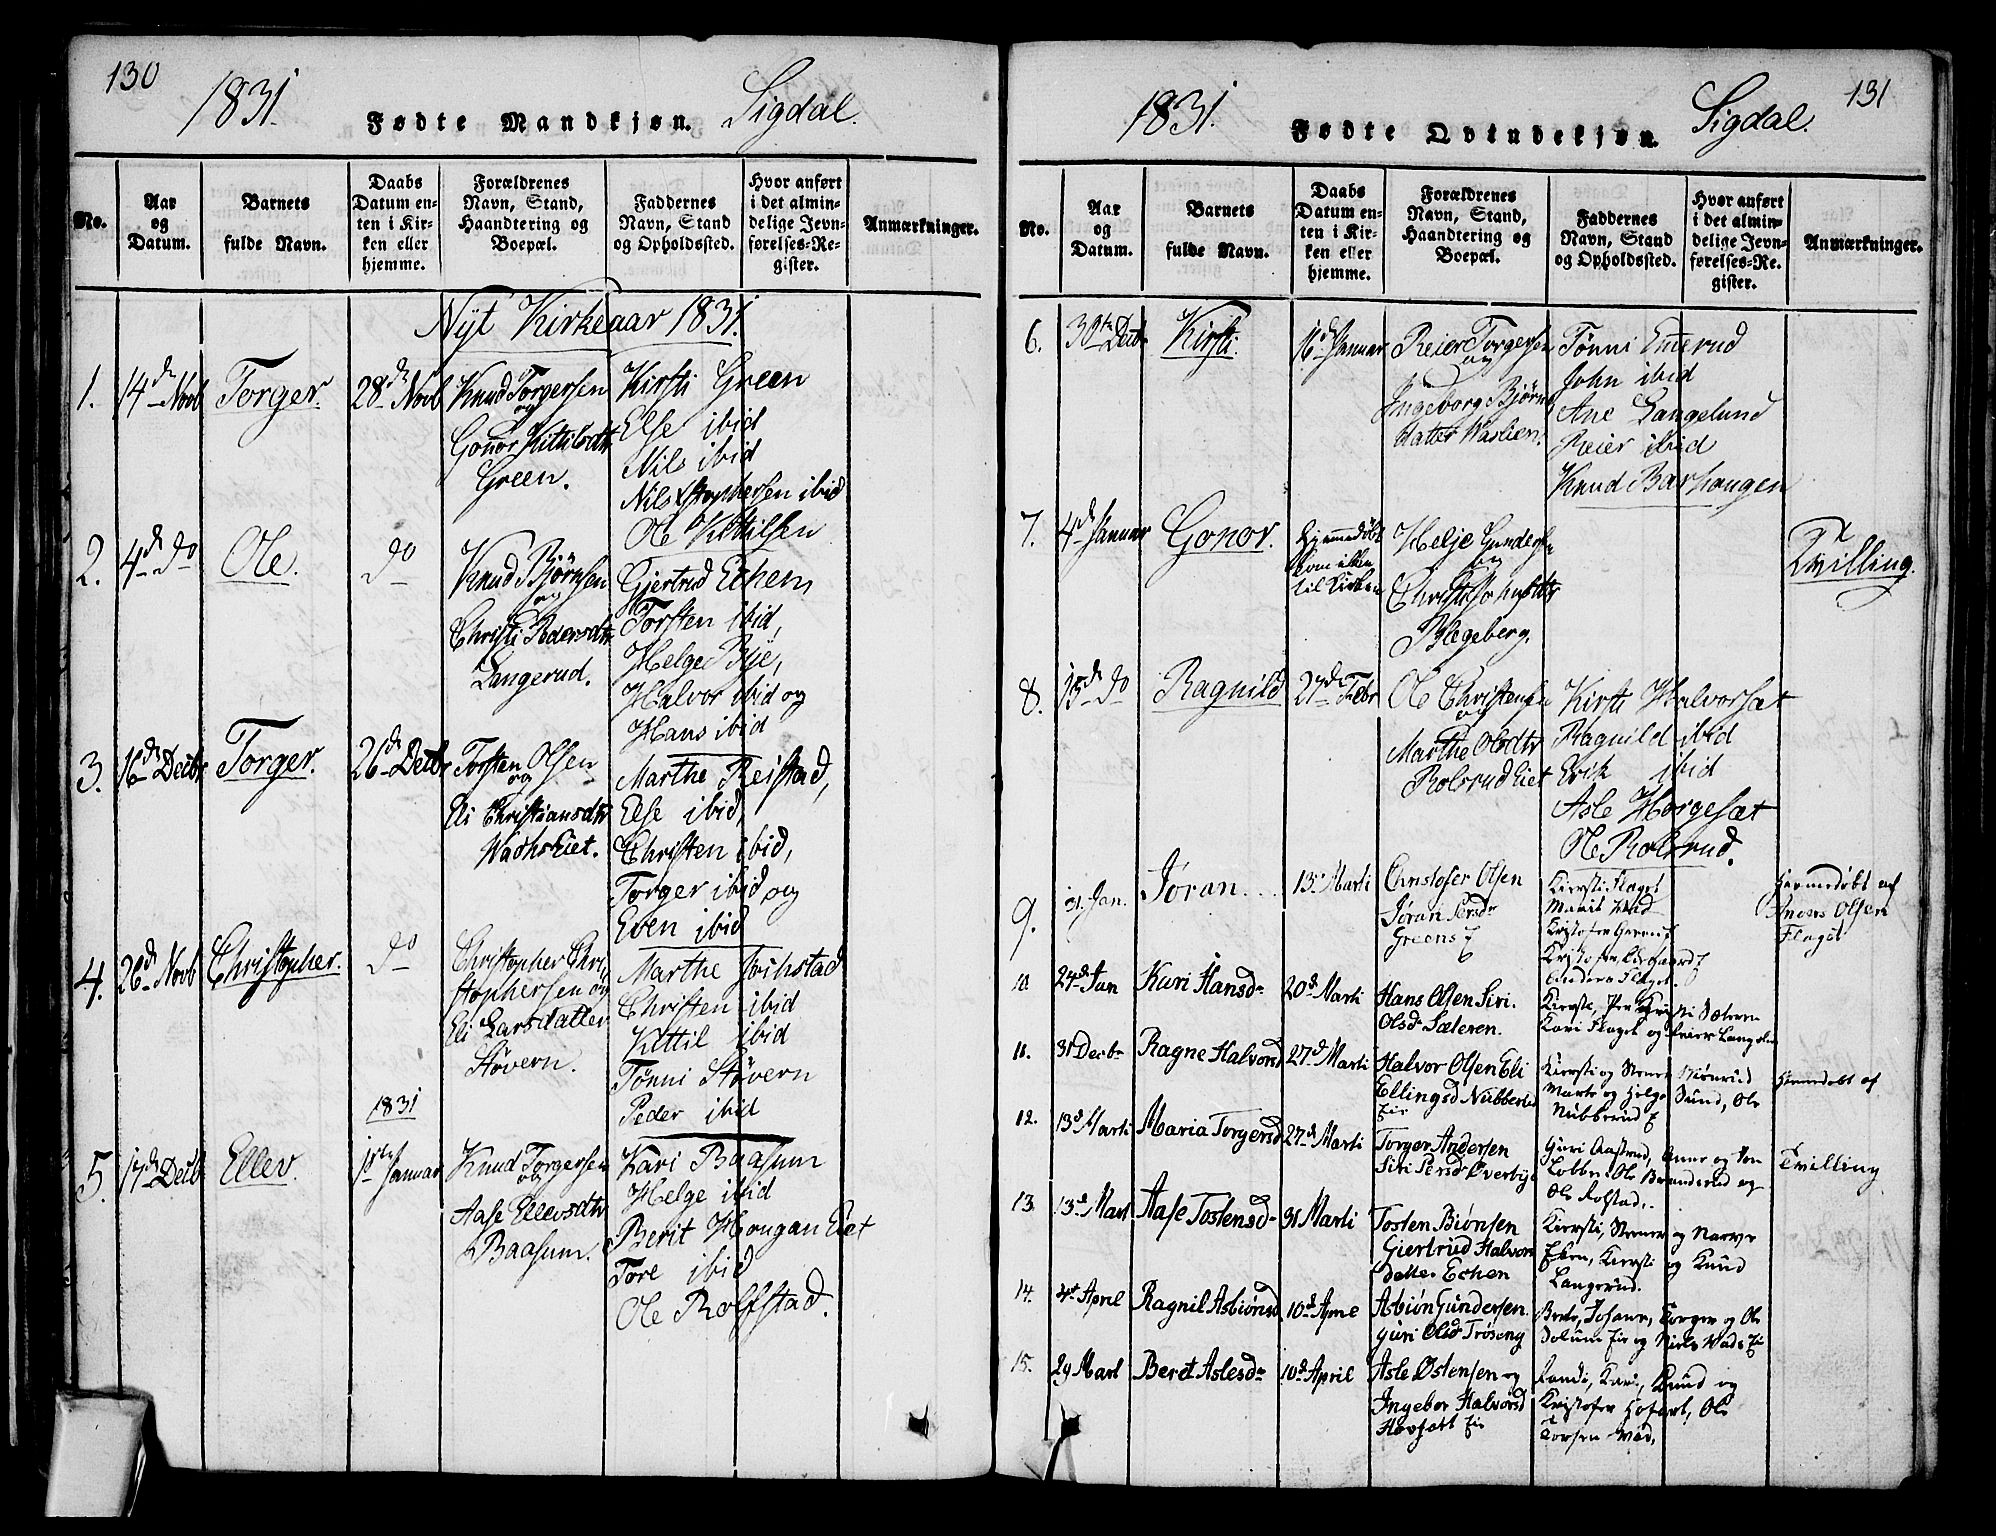 130
1831. Fødte Mandkjøn. Sigdal.
No.
Aar og Datum.
Barnets fulde Navn.
Daabs Datum enten i Kirken eller hjemme.
Forældrenes Navn, Stand, Haandtering og Boepæl.
Faddernes Navn, Stand og Opholdssted.
Hvor anført i det almindelige Jevnførelses-Register.
Anmærkninger.
Nyt Kirkeaar 1831.
1. 14de Novb Torger. 28de Novb
Knud Torgersen
og
Gonor Kittilsdtr
Green.
Kirsti Green
Else ibid
Nils ibid
Nils Xstophersen ibid
Ole Kittilsen
2. 4de do Ole. do
Knud Bjørnsen
og
Christi Pedersdtr
Langerud.
Gjertrud Echern
Torsten ibid,
Helge Bye,
Halvor ibid og
Hans ibid
3. 16de Decbr Torger. 26de Decbr
Torsten Olsen
og
Eli Christiansdtr
Wadhs Eiet.
Marthe Reistad,
Else ibid,
Christen ibid,
Torger ibid og
Even ibid
4. 26de Novb Christopher. do
Christopher Chri
stophersen og
Eli Larsdatter
Støvern.
Marthe
Christen ibid
Kittil ibid
Tønni Støvern
Peder ibid
1831
5. 17de Decbr Ellev. 1ste Januar
Knud Torgersen
og
Aase Ellevsdtr
Baasum.
Kari Baasum
Helge ibid
Berit Hougan Eiet
Tore ibid
Ole Rolfstad.
131
1831. Fødte Qvindekjøn. Sigdal.
No.
Aar og Datum.
Barnets fulde Navn.
Daabs Datum enten i Kirken eller hjemme.
Forældrenes Navn, Stand, Haandtering og Boepæl.
Faddernes Navn, Stand og Opholdssted.
Hvor anført i det almindelige Jevnførelses-Register.
Anmærkninger.
6. 30te Decbr Kirsti. 16de Januar
Reier Torgersen
og
Ingeborg Bjørns
datter Warlien.
Tønni Emerud
John ibid
Ane Langelund
Reier ibid
Knud Barhaugen
7. 4de Januar Gonor.
Hjemmedøbt
kom ikke
til Kirken
Helje Gundersen
og
Christi Johnsdtr
Blegeberg.
Tvilling.
8. 15de do Ragnild 27de Febr
Ole Christensen
og
Marthe Olsdtr
Rolsrud Eiet
Kirsti Halvorsæt
Ragnild ibid
Erik ibid
Asle Horgesæt
Ole Rolsrud.
9. 31. Jan. Jøran. 13. Marti
Christofer Olsen
Jøran Persdr
Greens E
Kiersti Flaget
Marit
Kristofer
Kristofer
Anders Flaget.
Hiemmedøbt af
Anders Olsen
Flaget
10. 24de Jan Kari Hansdr 20de Marti
Hans Olsen Siri
Olsdr Sæteren.
Kiersti, Per Sæteren
Kari Flaget og
11. 31 Decbr Ragne Halvorsd 27de Marti
Halvor Olsen Eli
Ellingsd Nubberud
Eie
Kiersti og Stener
Marte og Helge Lund, Ole
Nubberud E
Hiemdøbt af
12. 13de Marti Maria Torgersd 27de Marti
Torger Andersen
Siri Persdr Øverbye
Guri Aastrud, Anne og
Lobben Ole Branderud og
Ole Rolstad.
Tvilling
13. 13de Mart Aase Tostensdr 31 Marti
Tosten Biønsen
Giertrud Halvors
datter Echen
Kiersti, Stener og Narve
Eken, Kiersti og Knud
Langerud.
14. 4de April Ragnil Asbiønsd 10de Apriel
Asbiøn Gundersen
Guri Olsd Trøseng
Berte, Johanne, Torger og Ole
Solum Eie og Niels Wads E
15. 29 Mart Beret Aslesdr 10de April
Asle Østensen og
Ingebor Halvorsd
Hovsætt Eie
Randi, Kari, Knud og
Kristofer Hofsæt, Ole
Torsen Wad.